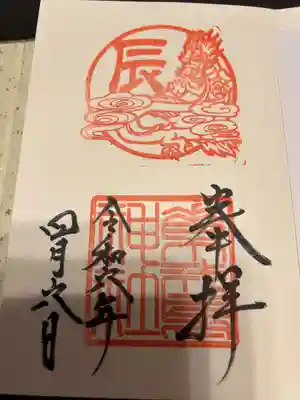 辰
奉拝
令和六年
四月六日